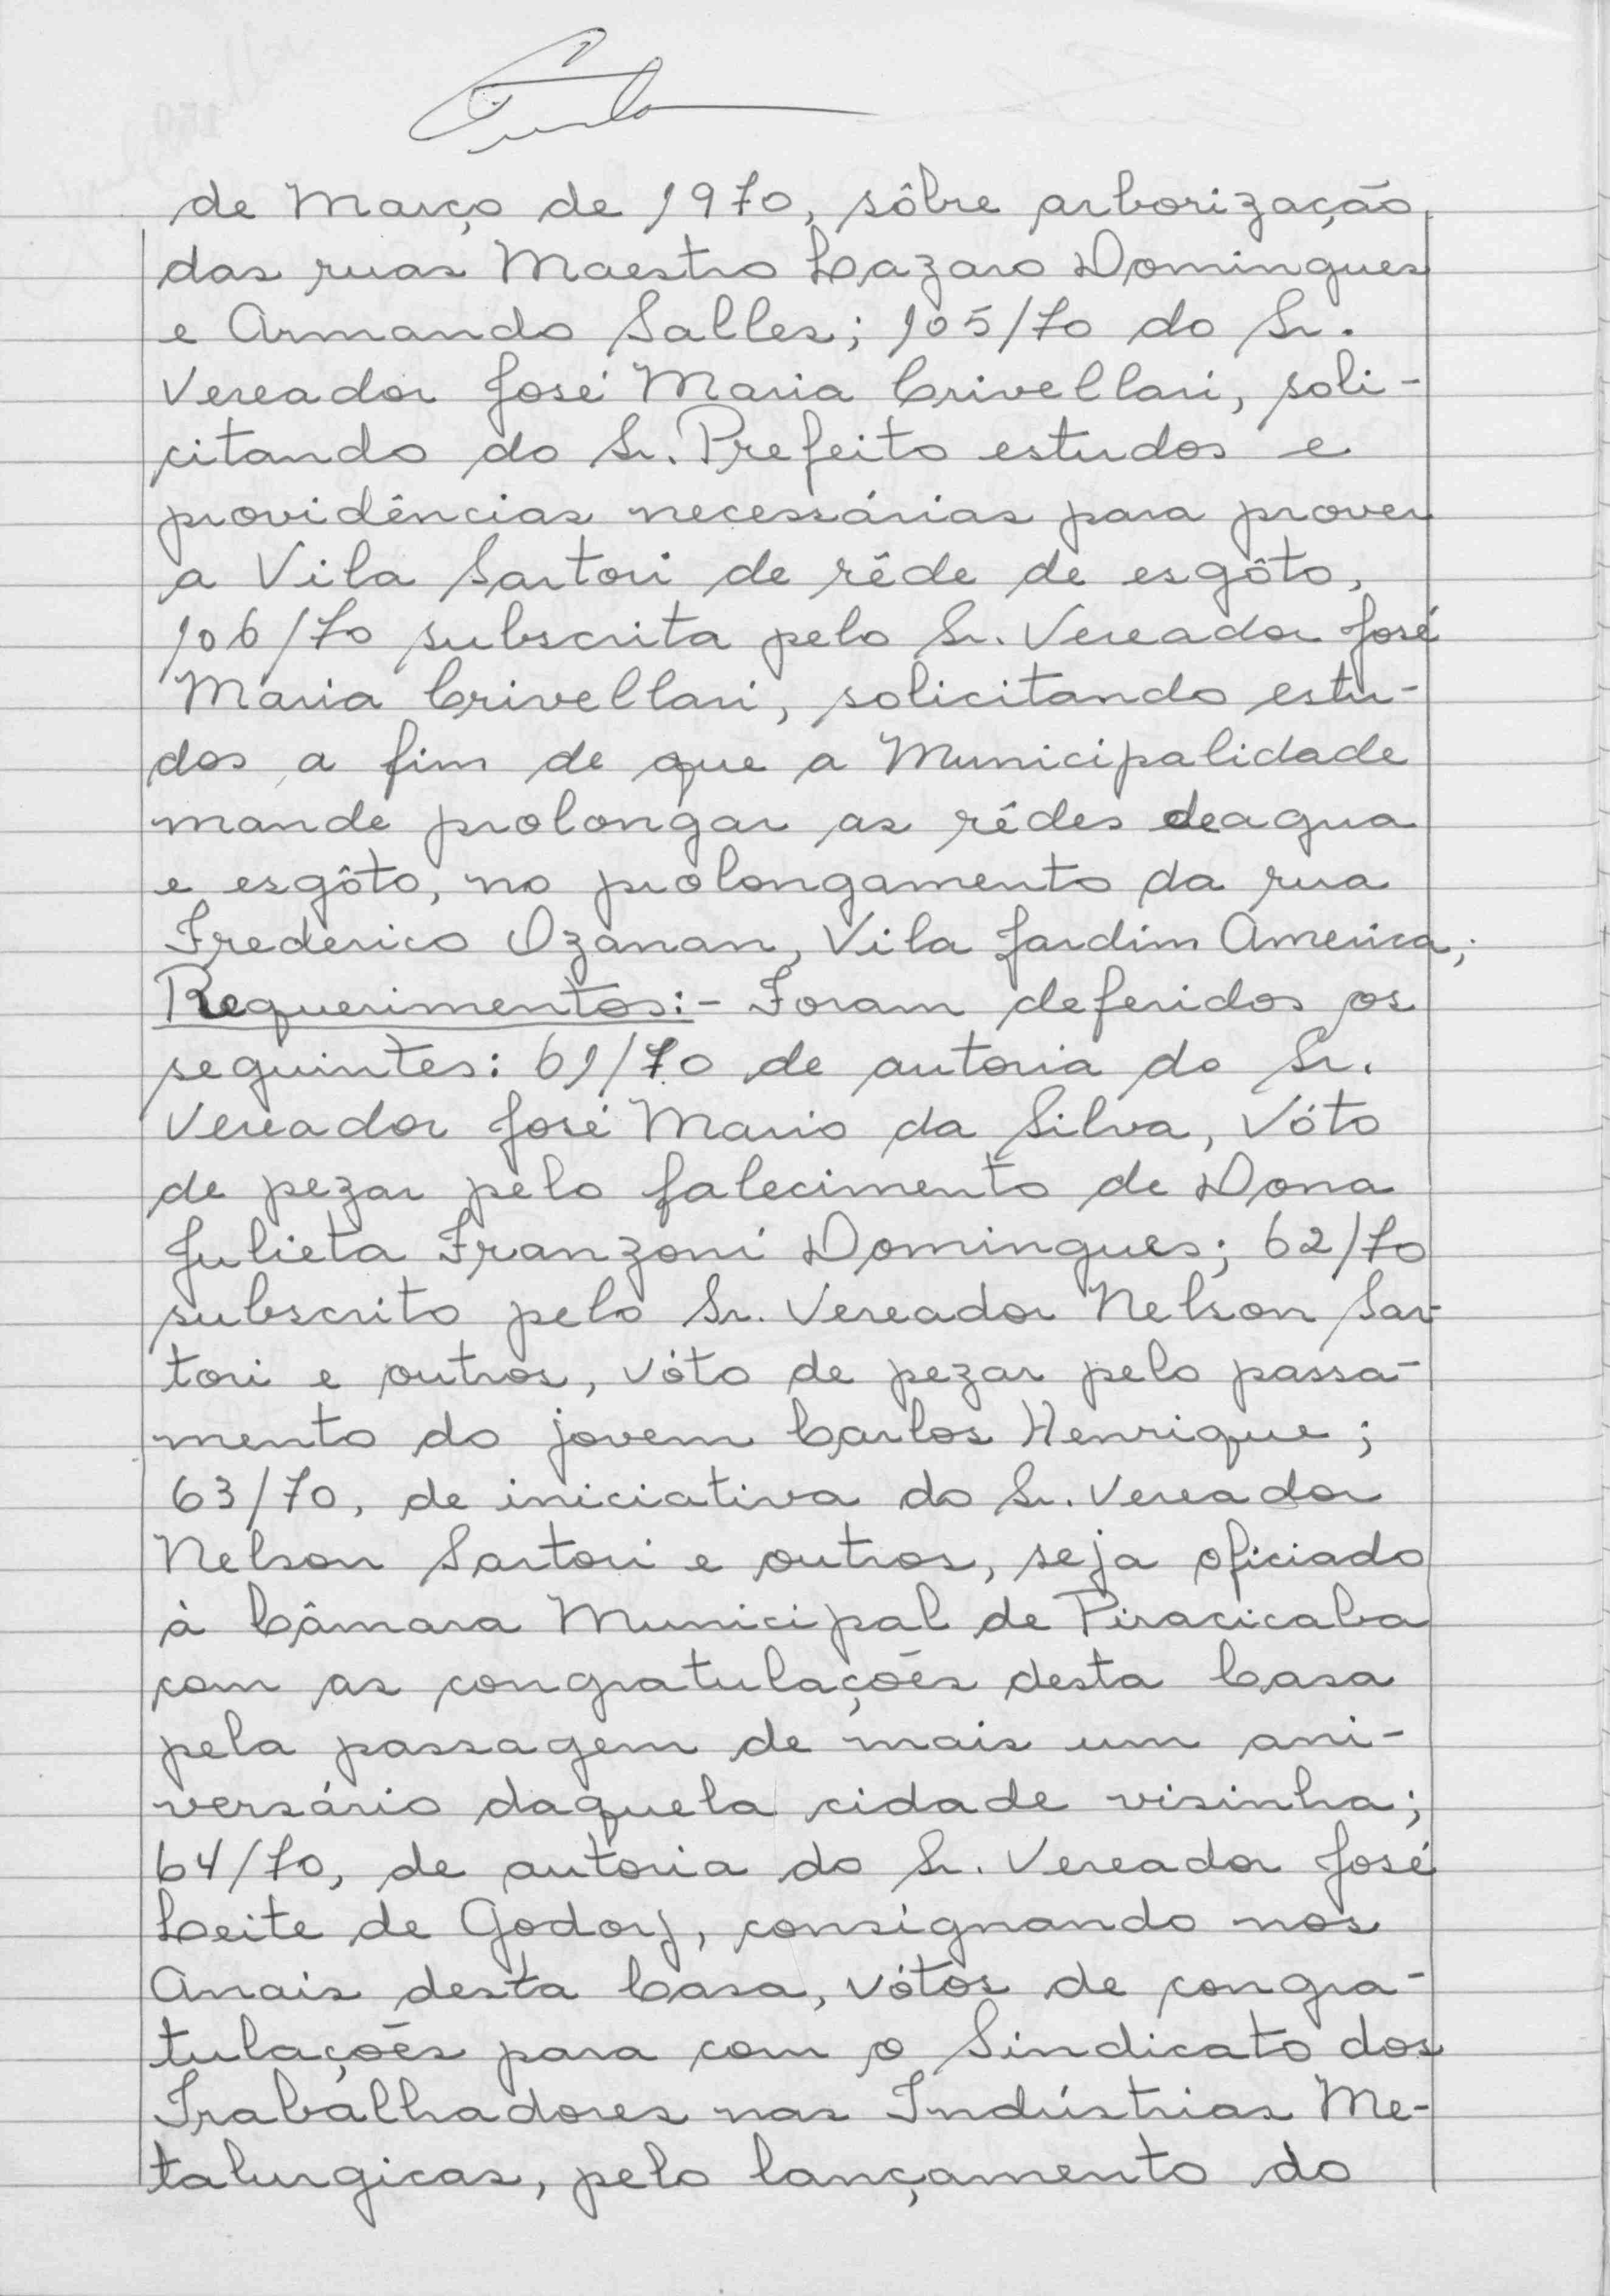 de Março de 1970, sôbre arborização
das ruas Maestro Lazaro Domingues
e Armando Salles; 105/70 do Sr.
Vereador José Maria Crivellari, soli-
citando do Sr. Prefeito estudos e
providências necessárias para prover
a Vila Sartori de rêde de esgôto,
106/70 subscrita pelo Sr. Vereador José
Maria Crivellari, solicitando estu-
dos a fim de que a Municipalidade
mande prolongar as rêdes de agua
e esgôto, no prolongamento da rua
Frederico Ozanan, Vila Jardim America;
Requerimentos:- Foram deferidos os
seguintes: 61/70 de autoria do Sr.
Vereador José Mario da Silva, Vóto
de pezar pelo falecimento de Dona
Julieta Franzoni Domingues; 62/70
subscrito pelo Sr. Vereador Nelson Sar-
tori e outros, vóto de pezar pelo passa-
mento do jovem Carlos Henrique;
63/70, de iniciativa do Sr. Vereador
Nelson Sartori e outros, seja oficiado
à Câmara Municipal de Piracicaba
com as congratulações desta Casa
pela passagem de mais um ani-
versário daquela cidade visinha;
64/70, de autoria do Sr. Vereador José
Leite de Godoy, consignando nos
Anais desta Casa, vótos de congra-
tulações para com o Sindicato dos
Trabalhadores nas Indústrias Me-
talurgicas, pelo lançamento do